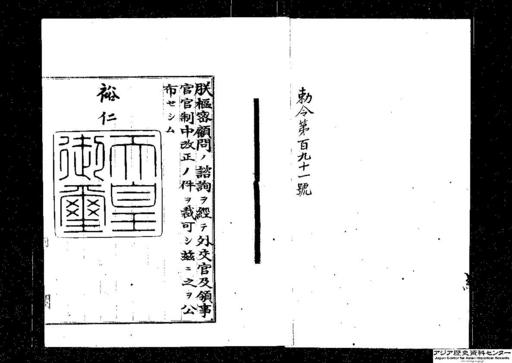 勅令第百九十一號
朕樞密顧問ノ諮詢ヲ經テ外交官及領事
官官制中改正ノ件ヲ裁可シ茲ニ之ヲ公
布セシム
裕仁
天皇
御璽
アジア歴史資料センター
Japan Center for Asian Historical Records